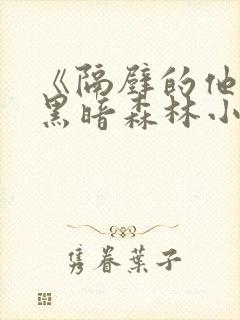 《隔壁的他
黑暗森林小
隽眷葉子